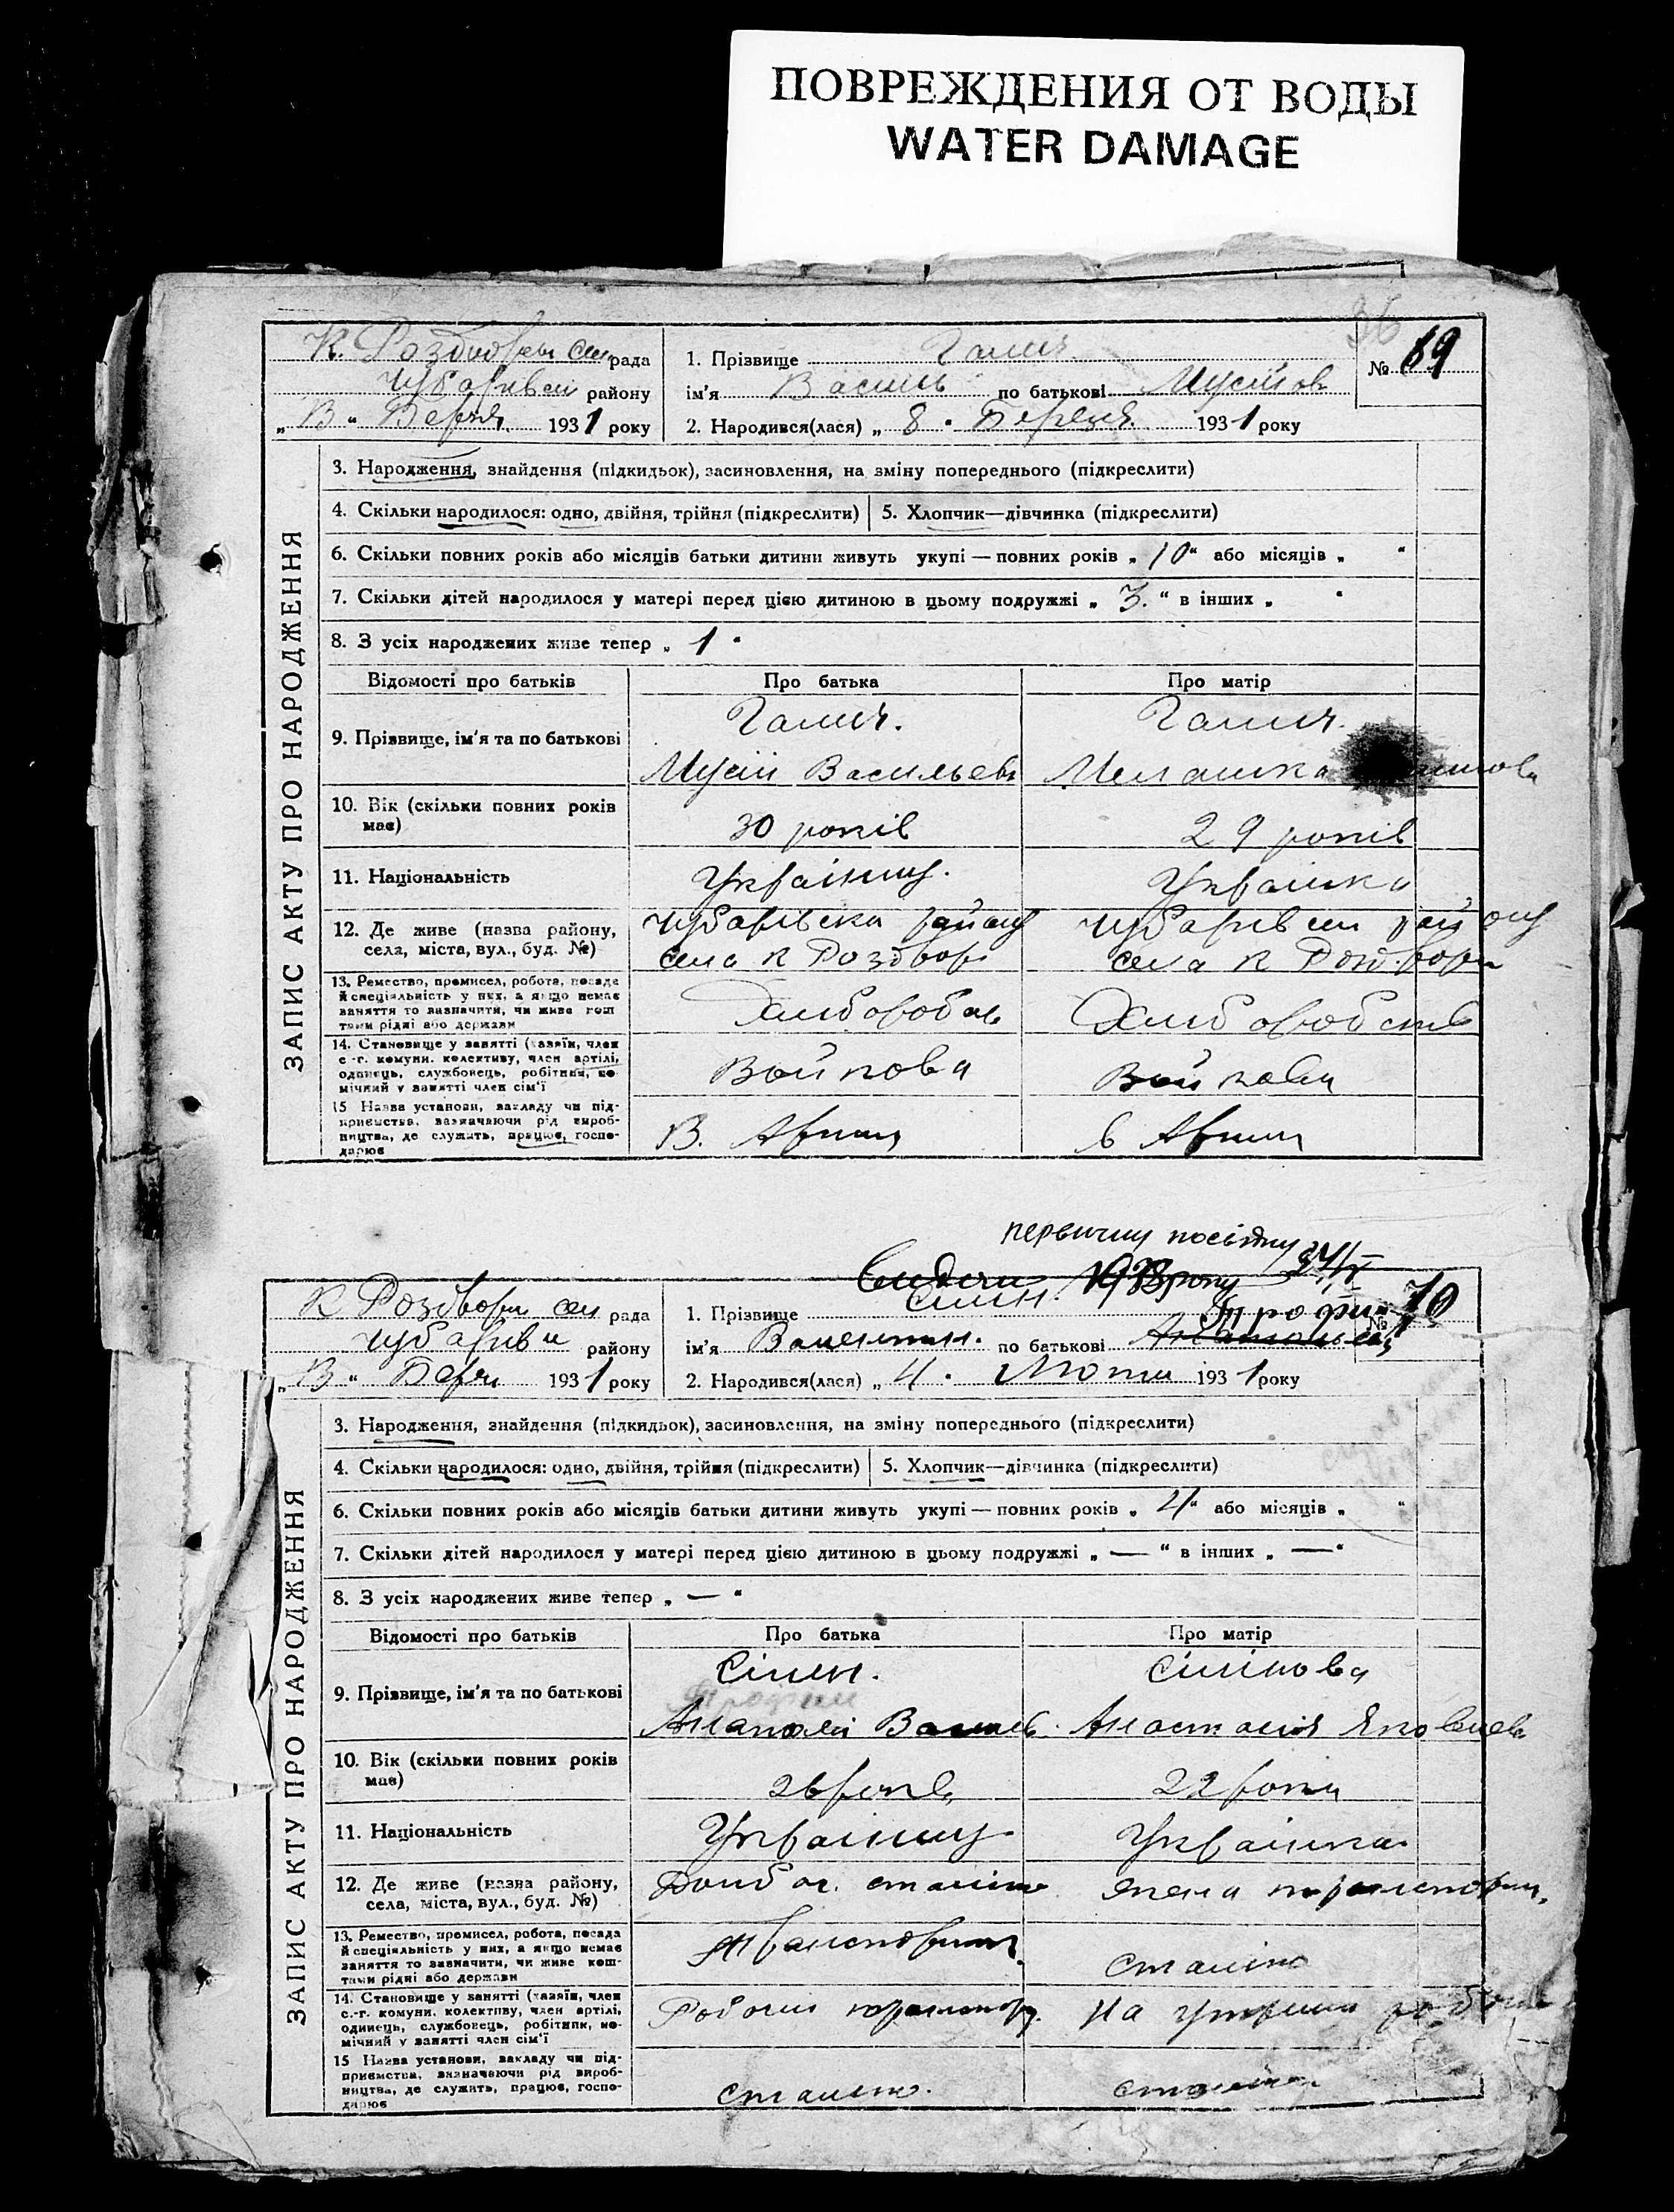 ПОВРЕЖДЕНИЯ ОТ ВОДЫ
WATER DAMAGE
36
К. Роздори сел рада
1. Прізвище Галич
№ 69
Чубарівськ району
ім'я Василь по батькові Мусійов
„ 13 “ Берзня 1931 року
2. Народився(лася) „ 8 “ Березня 1931 року
ЗАПИС АКТУ ПРО НАРОДЖЕННЯ
3. Народження, знайдення (підкидьок), засиновлення, на зміну попереднього (підкреслити)
4. Скільки народилося: одно, двійня, трійня (підкреслити)
5. Хлопчик—дівчинка (підкреслити)
6. Скільки повних років або місяців батьки дитини живуть укупі — повних років „ 10 “ або місяців „ “
7. Скільки дітей народилося у матері перед цією дитиною в цьому подружжі „ 3. “ в інших „ “
8. З усіх народжених живе тепер „ 1 “
Відомості про батьків Про батька Про матір
9. Прізвище, ім'я та по батькові
Галич. Галич.
Мусій Васильев Мелашка
10. Вік (скільки повних років має)
30 років 29 років
11. Національність
Українец. Українка
12. Де живе (назва району, села, міста, вул., буд. №)
Чубарівськ району Чубарівськ району
села К Роздори села К Роздори
13. Ремество, промисел, робота, посада й спеціяльність у них, а якщо немає заняття то зазначити, чи живе кош тами рідні або держави
Хлібороб Хліборобств
14. Становище у занятті (хазяїн, член с.-г. комуни. колективу, член артілі, одинець, службовець, робітник, помічний у занятті член сім'ї
15 Назва установи, закладу чи підприємства, зазначаючи рід виробництва, де служить, працює, господарює
первичну посвідку
видачи 1933 року
К Роздори сел рада
1. Прізвище Сілин.
№ 70
Трофим
Чубарів району
ім'я Валентин. по батькові Анатольев
„ 13 “ Берзн 1931 року
2. Народився(лася) „ 4 “ Люти 1931 року
ЗАПИС АКТУ ПРО НАРОДЖЕННЯ
3. Народження, знайдення (підкидьок), засиновлення, на зміну попереднього (підкреслити)
4. Скільки народилося: одно, двійня, трійня (підкреслити)
5. Хлопчик—дівчинка (підкреслити)
6. Скільки повних років або місяців батьки дитини живуть укупі — повних років „ 4 “ або місяців „ “
7. Скільки дітей народилося у матері перед цією дитиною в цьому подружжі „ — “ в інших „ — “
8. З усіх народжених живе тепер „ — “
Відомості про батьків Про батька Про матір
9. Прізвище, ім'я та по батькові
Сілин. Сілінова
Трофим
Анатолій Васильв. Анастасія Яковлев
10. Вік (скільки повних років має)
26 років 22 роки
11. Національність
Українец Українка
12. Де живе (назва району, села, міста, вул., буд. №)
Донбас. сталіно
13. Ремество, промисел, робота, посада й спеціяльність у них, а якщо немає заняття то зазначити, чи живе коштами рідні або держави
сталіно
14. Становище у занятті (хазяїн, член с.-г. комуни. колективу, член артілі, одинець, службовець, робітник, помічний у занятті член сім'ї
Робочий На утриман
15 Назва установи, закладу чи підприємства, зазначаючи рід виробництва, де служить, працює, господарює
сталіно. сталіно